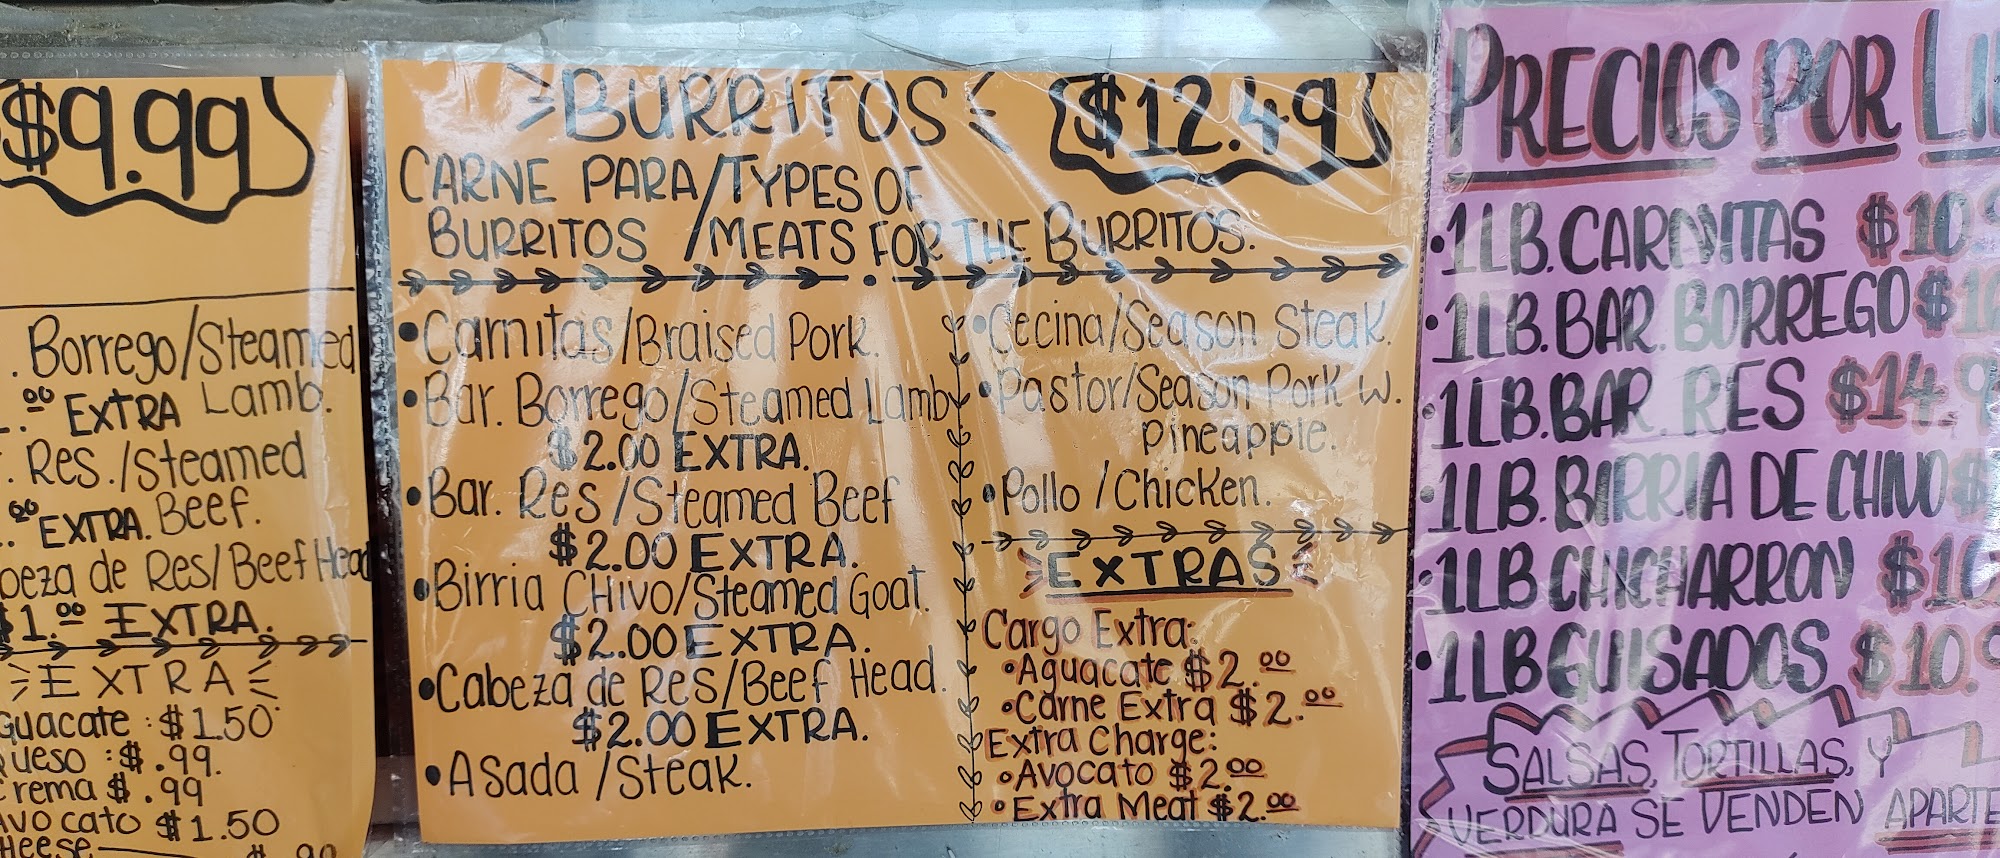 $9.99
. Borrego/Steamed
.00 EXTRA Lamb.
. Res./Steamed
.00 EXTRA. Beef.
beza de Res/Beef Head
$1.00 EXTRA.
EXTRA
guacate : $1.50
ueso : $.99.
rema $.99
Avocato $1.50
Heese
BURRITOS $12.49
CARNE PARA/TYPES OF
BURRITOS /MEATS FOR THE BURRITOS.
•Carnitas/Braised Pork.
•Bar. Borrego/Steamed Lamb
$2.00 EXTRA.
•Bar. Res /Steamed Beef
$2.00 EXTRA.
•Birria CHIVO/Steamed Goat.
$2.00 EXTRA.
•Cabeza de Res/Beef Head.
$2.00 EXTRA.
•Asada /Steak.
•Cecina/Season Steak.
•Pastor/Season Pork w.
Pineapple.
•Pollo /Chicken.
EXTRAS
Cargo Extra:
•Aguacate $2.00
•Carne Extra $2.00
Extra Charge:
•Avocato $2.00
•Extra Meat $2.00
PRECIOS POR LI
•1LB. CARNITAS $10.
•1LB. BAR. BORREGO $1
•1LB. BAR. RES $14.9
•1LB. BIRRIA DE CHIVO $
•1LB. CHICHARRON $1
•1LB GUISADOS $10.9
SALSAS, TORTILLAS, Y
VERDURA SE VENDEN APARTE